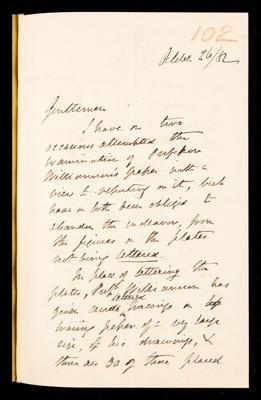 102
Octbr 26/82
Gentlemen
I have on two
occasions attempted the
examination of Professor
Williamson's paper with a
view to reporting on it, but
have on both been obliged to
abandon the endeavor, from
the figures on the plates
not being lettered.
In place of lettering the
plates, Profr Williamson has
lettered
given crude tracings on
tracing paper, of a very large
size, of his drawings, &
there are 30 of these placed